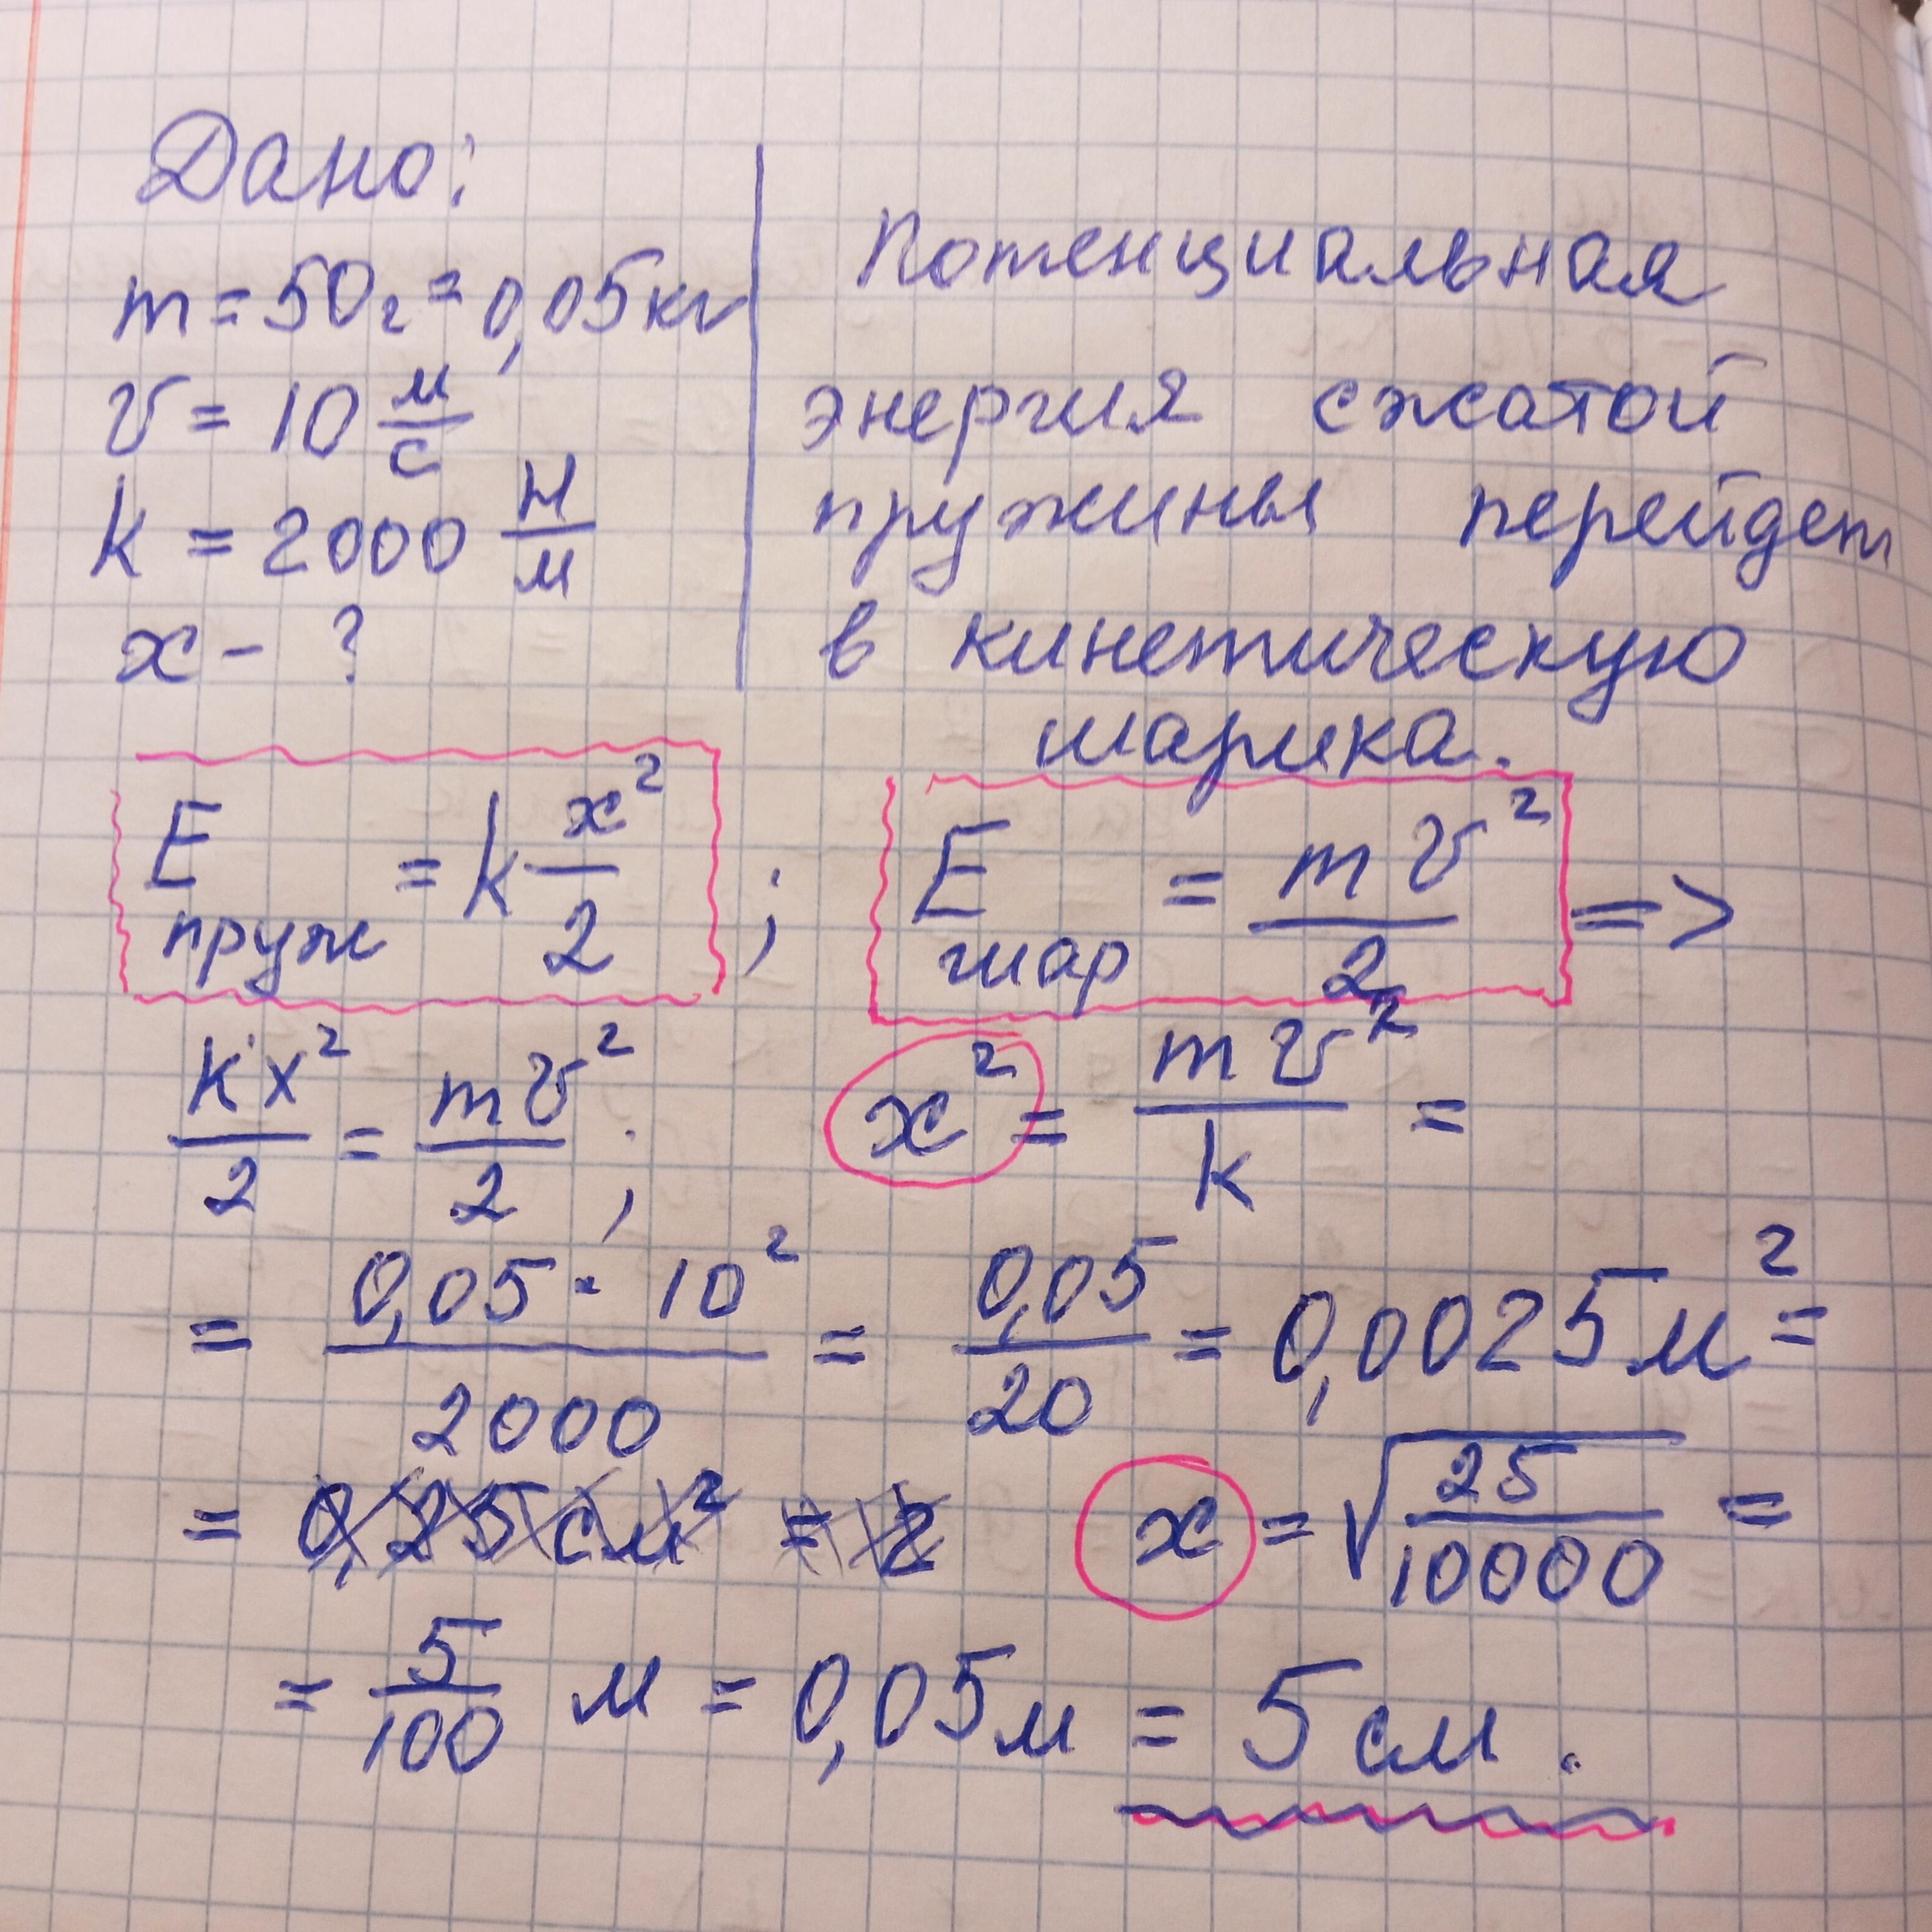 Дано:
m = 50г = 0,05кг
v = 10 м/с
k = 2000 Н/м
x - ?
Потенциальная
энергия сжатой
пружины перейдет
в кинетическую
шарика.
E пруж = k x²/2 ; E шар = mv²/2 =>
kx²/2 = mv²/2 ; x² = mv²/k =
= 0,05 · 10²/2000 = 0,05/20 = 0,0025 м² =
= 0,25 см² = 2 x = √25/10000 =
= 5/100 м = 0,05 м = 5 см.